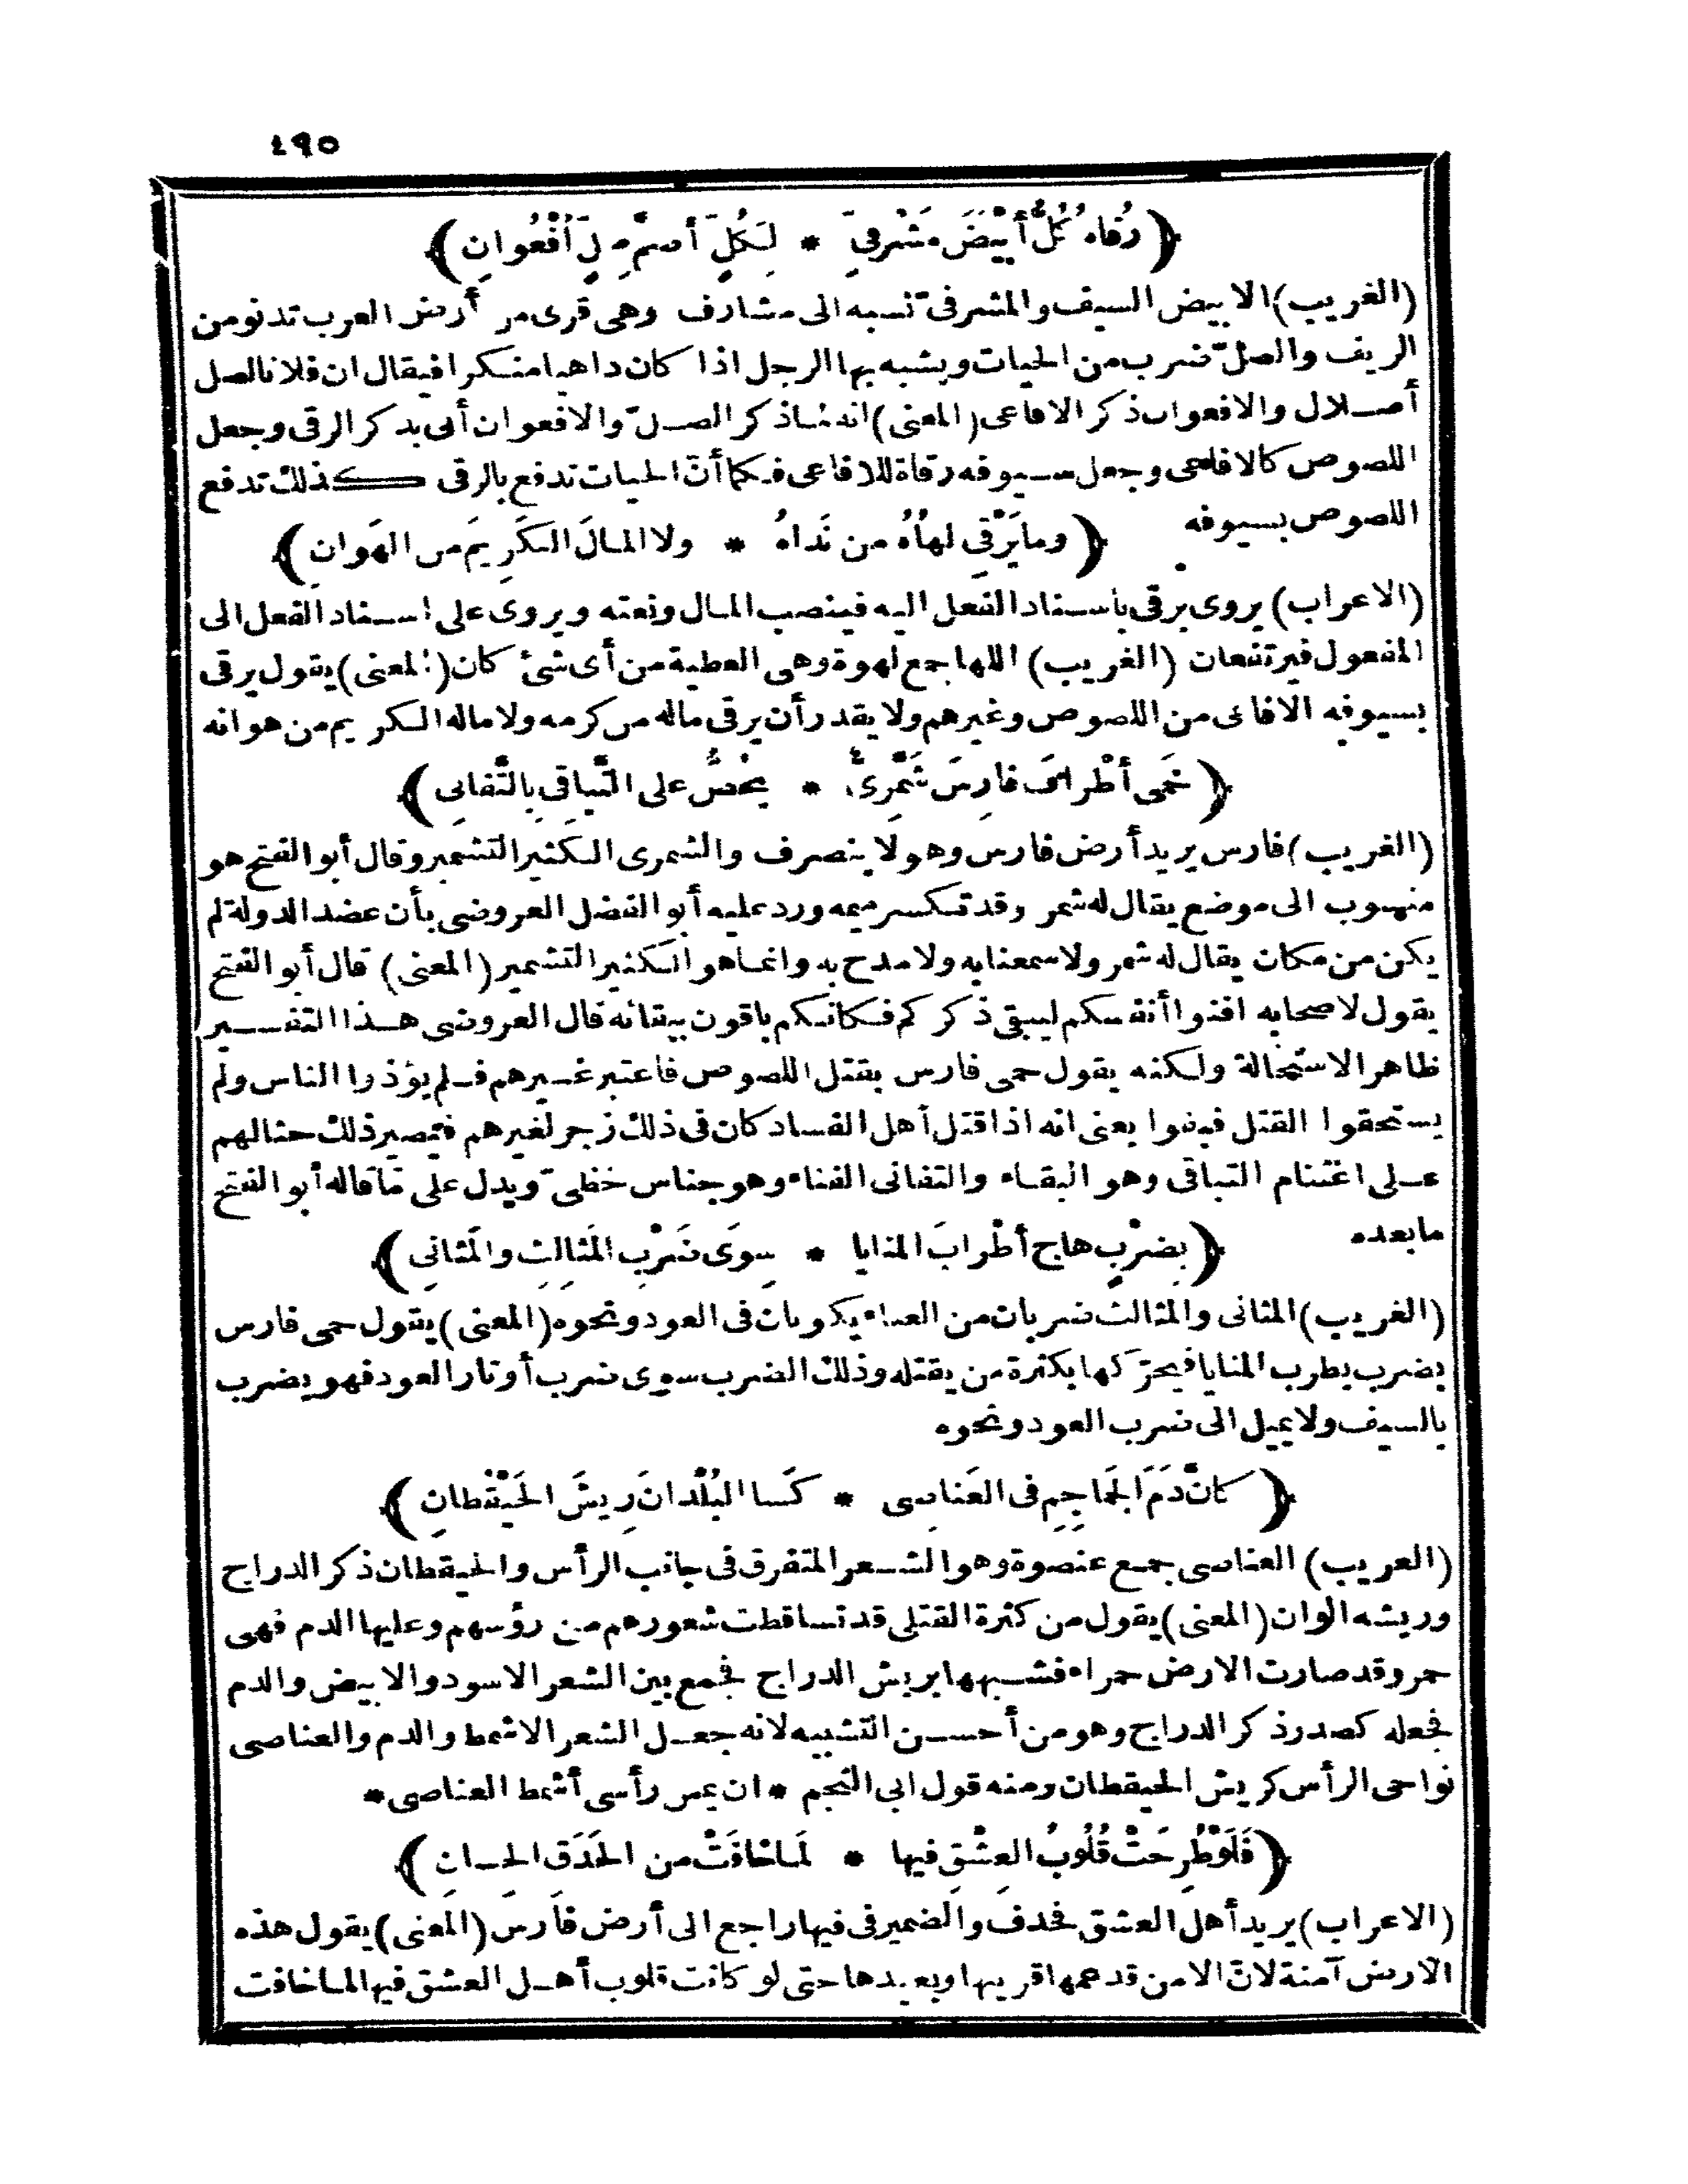 ٤٩٥
﴿رُقاهُ كُلُّ أَبْيَضَ مَشْرَفيٍّ * لِكُلِّ أصَمَّ صِلٍّ أُفْعُوانِ﴾
(الغريب) الابيض السيف والمشرفىّ نسبه الى مشارف وهى قرى من أرض العرب تدنو من
الريف والصلّ ضرب من الحيات ويشبه بها الرجل اذا كان داهيا منكرا فيقال ان فلانا لصل
أصلال والافعوان ذكر الافاعى (المعنى) انه لما ذكر الصلّ والافعوان أتى بذكر الرقى وجعل
اللصوص كالافاعى وجعل سيوفه رقاة للافاعى فكما أنّ الحيات تدفع بالرقى كذلك تدفع
اللصوص بسيوفه
﴿وما يَرْقِى لُهاهُ من نَداهُ * ولا المالَ الكَرِيمَ من الهَوانِ﴾
(الاعراب) يروى يرقى باسناد الفعل اليه فينصب المال ونعته ويروى على اسناد الفعل الى
المفعول فيرتفعان (الغريب) اللها جمع لهوة وهى العطية من أى شئ كان (المعنى) يقول يرقى
بسيوفه الافاعى من اللصوص وغيرهم ولا يقدر أن يرقى ماله من كرمه ولا ماله الكريم من هوانه
﴿حَمَى أطْرافَ فارِسَ شَمَّرِىٌّ * يَحُضُّ على التَّباقِى بِالتَّفانِى﴾
(الغريب) فارس يريد أرض فارس وهو لا ينصرف والشمرى الكثير التشمير وقال أبو الفتح هو
منسوب الى موضع يقال له شمر وقد تكسر ميمه ورد عليه أبو الفضل العروضى بأن عضد الدولة لم
يكن من مكان يقال له شمر ولا سمعنا به ولا مدح به وانما هو الكثير التشمير (المعنى) قال أبو الفتح
يقول لاصحابه افنوا أنفسكم ليبقى ذكركم فكانكم باقون ببقائه قال العروضى هذا التفسير
ظاهر الاستحالة ولكنه يقول حمى فارس بقتل اللصوص فاعتبر غيرهم فلم يؤذوا الناس ولم
يستحقوا القتل فبقوا يعنى انه اذا قتل أهل الفساد كان فى ذلك زجر لغيرهم فيصير ذلك حثا لهم
على اغتنام التباقى وهو البقاء والتفانى الفناء وهو جناس خطىّ ويدل على ما قاله أبو الفتح
ما بعده
﴿بِضَرْبٍ هاج أطْرابَ المنايا * سِوَى ضَرْبِ المَثالِثِ والمَثانِى﴾
(الغريب) المثانى والمثالث ضربان من الغناء يكونان فى العود ونحوه (المعنى) يقول حمى فارس
بضرب يطرب المنايا فيحرّكها بكثرة من يقتله وذلك الضرب سوى ضرب أوتار العود فهو يضرب
بالسيف ولا يميل الى ضرب العود ونحوه
﴿كأنَّ دَمَ الجَماجِمِ فى العَناصِى * كَسا البُلْدانَ رِيشَ الحَيْقُطانِ﴾
(الغريب) العناصى جمع عنصوة وهو الشعر المتفرق فى جانب الرأس والحيقطان ذكر الدراج
وريشه الوان (المعنى) يقول من كثرة القتلى قد تساقطت شعورهم من رؤسهم وعليها الدم فهى
حمر وقد صارت الارض حمراء فشبهها بريش الدراج فجمع بين الشعر الاسود والابيض والدم
فجعله كصدر ذكر الدراج وهو من أحسن التشبيه لانه جعل الشعر الاشمط والدم والعناصى
نواحى الرأس كريش الحيقطان ومنه قول ابى النجم * ان يمس رأسى أشمط العناصى *
﴿فَلَوْ طُرِحَتْ قُلُوبُ العِشْقِ فيها * لَما خافَتْ من الحَدَقِ الحِسانِ﴾
(الاعراب) يريد أهل العشق فحذف والضمير فى فيها راجع الى أرض فارس (المعنى) يقول هذه
الارض آمنة لانّ الامن قد عمها قريبها وبعيدها حتى لو كانت قلوب أهل العشق فيها لما خافت